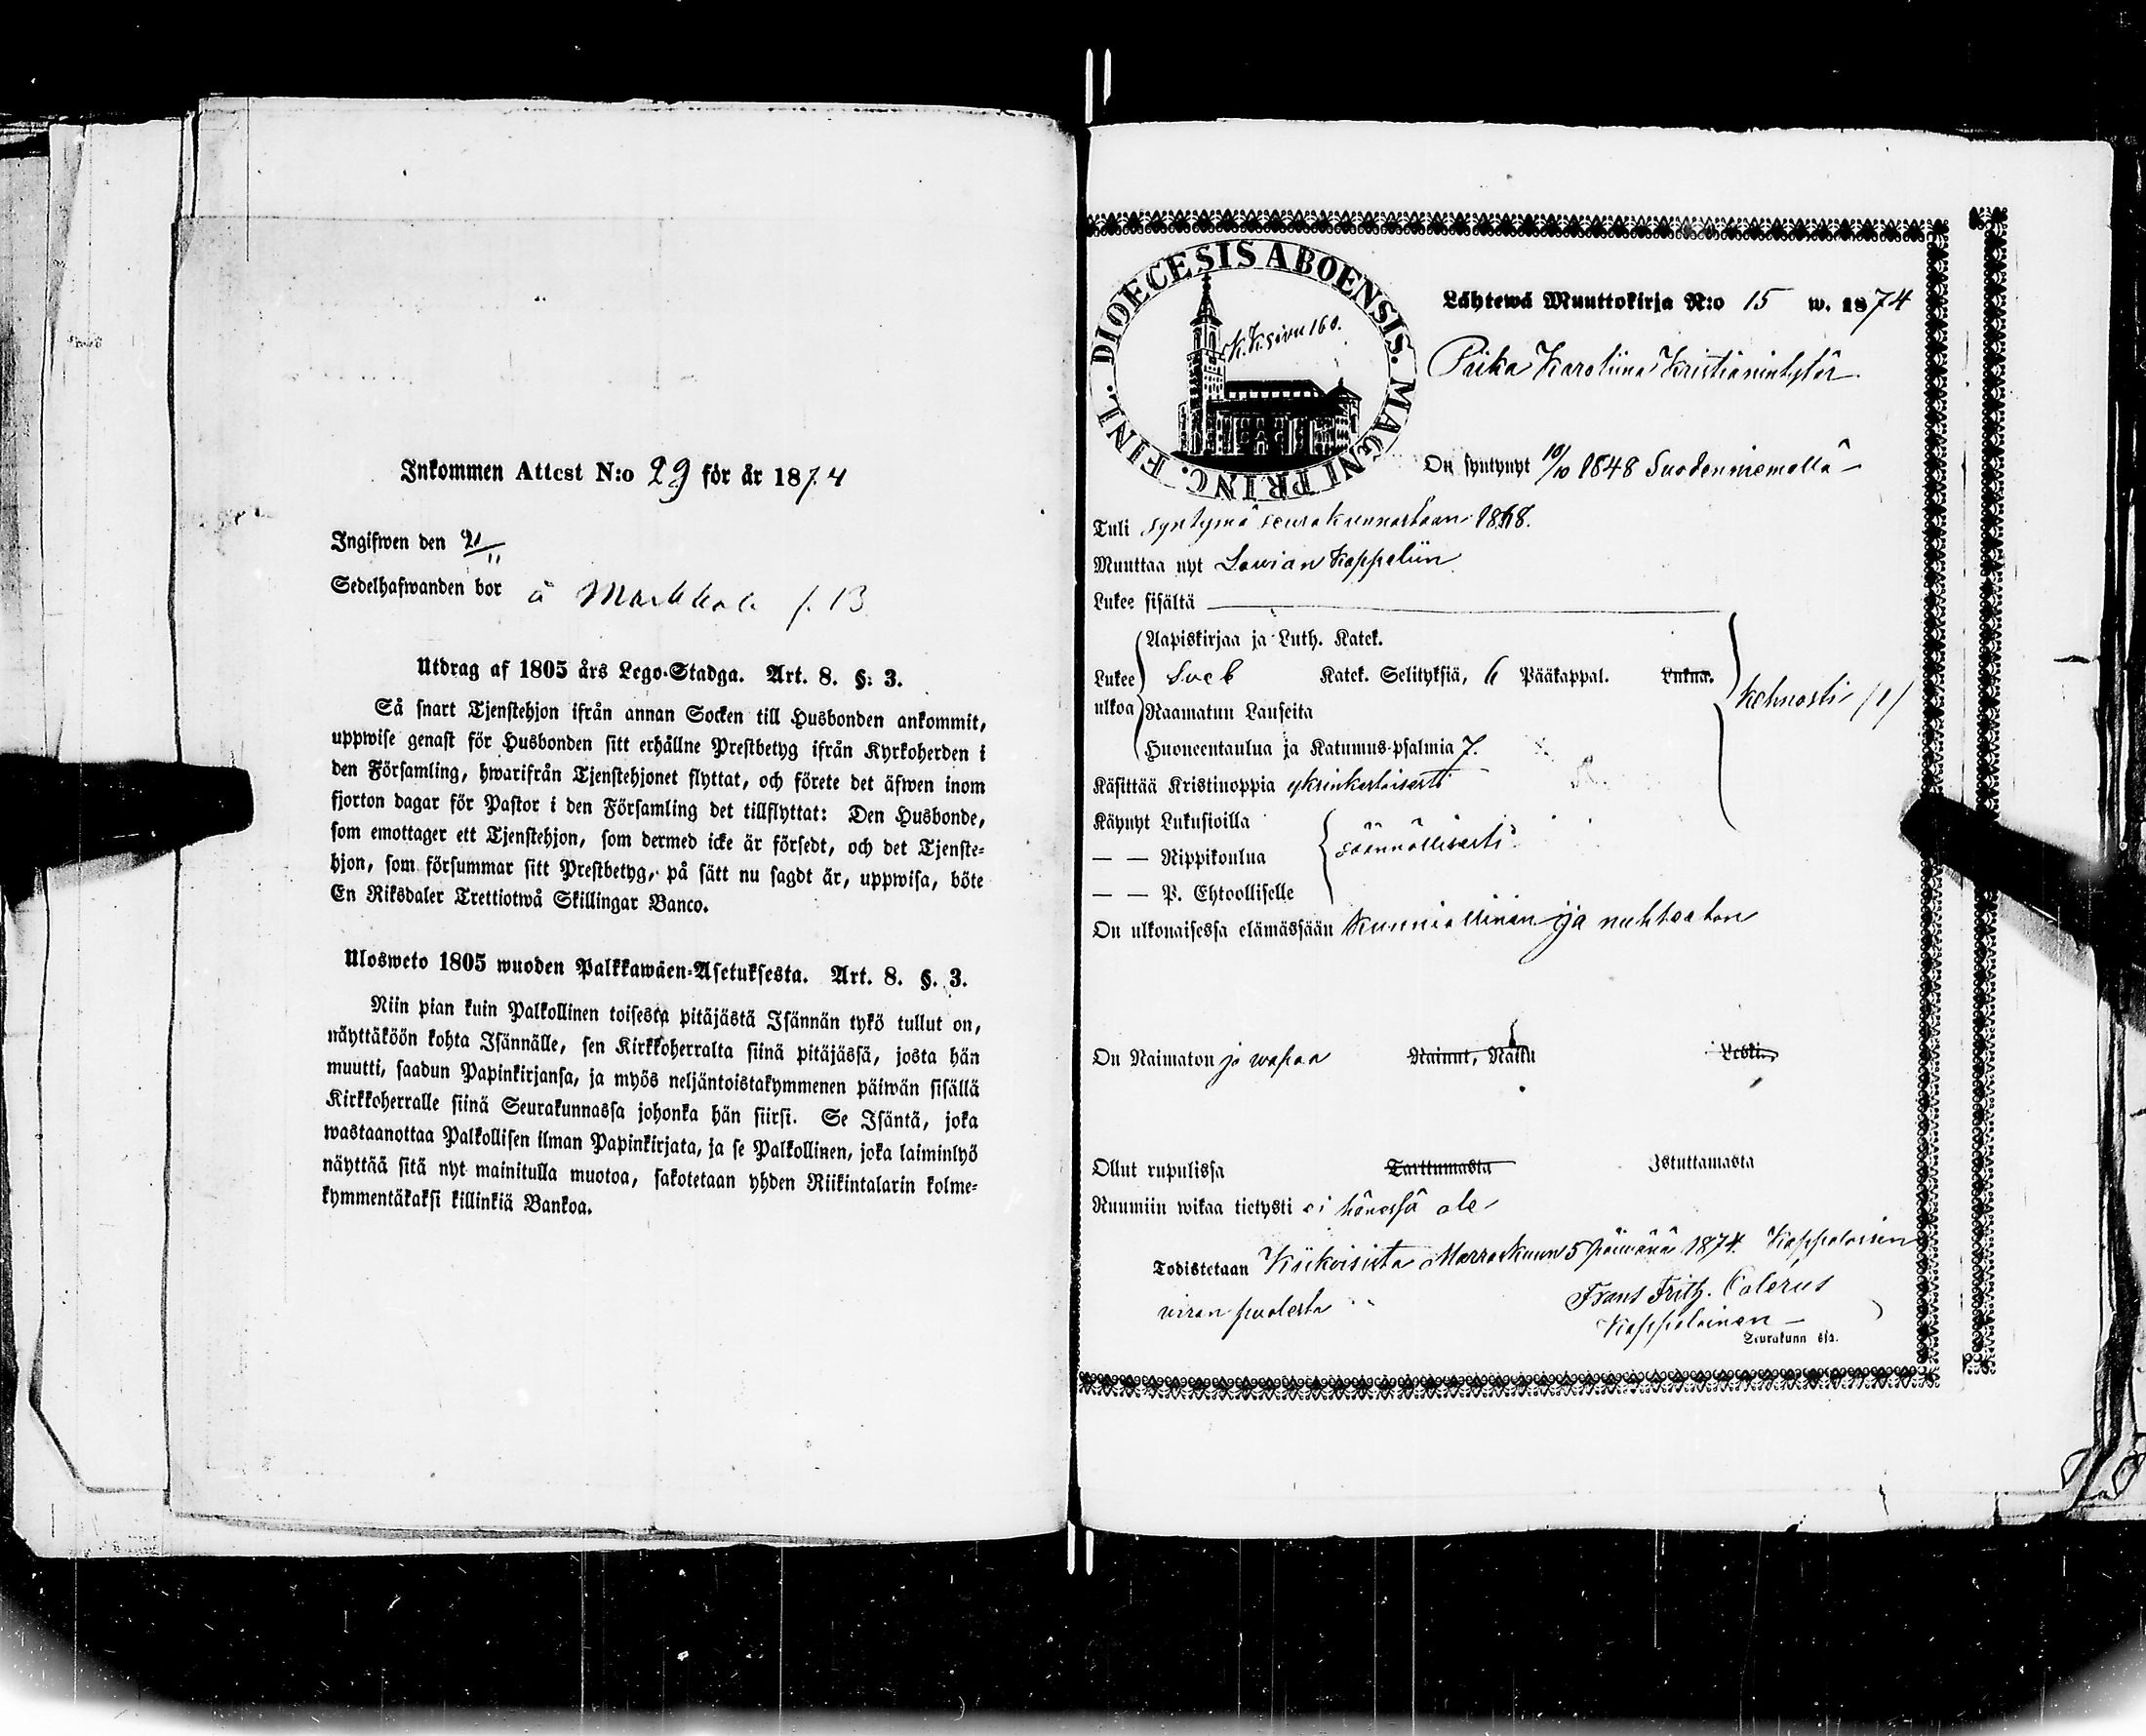 Inkommen Attest N:o 29 för år 1874
Ingifwen den 21/11
Sedelhafwanden bor å Markkola f. 13
Utdrag af 1805 års Lego-Stadga. Art. 8. §: 3.
Så snart Tjenstehjon ifrån annan Socken till Husbonden ankommit,
uppwise genast för Husbonden sitt erhållne Prestbetyg ifrån Kyrkoherden i
den Församling, hwarifrån Tjenstehjonet flyttat, och förete det äfwen inom
fjorton dagar för Pastor i den Församling det tillflyttat: Den Husbonde,
som emottager ett Tjenstehjon, som dermed icke är försedt, och det Tjenste-
hjon, som försummar sitt Prestbetyg, på sätt nu sagdt är, uppwisa, böte
En Riksdaler Trettiotwå Skillingar Banco.
Ulosweto 1805 wuoden Palkkawäen-Asetuksesta. Art. 8. §. 3.
Niin pian kuin Palkollinen toisesta pitäjästä Isännän tykö tullut on,
näyttäköön kohta Isännälle, sen Kirkkoherralta siinä pitäjässä, josta hän
muutti, saadun Papinkirjansa, ja myös neljäntoistakymmenen päiwän sisällä
Kirkkoherralle siinä Seurakunnassa johonka hän siirsi. Se Isäntä, joka
wastaanottaa Palkollisen ilman Papinkirjata, ja se Palkollinen, joka laiminlyö
näyttää sitä nyt mainitulla muotoa, sakotetaan yhden Riikintalarin kolme-
kymmentäkaksi killinkiä Bankoa.
DIOECESIS ABOENSIS. MAGNI PRINC. FINL.
K.K. sivu 160.
Lähtewä Muuttokirja N:o 15 w. 1874
Piika Karoliina Kristianintytär
On syntynyt 10/10 1848 Suodenniemellä
Tuli syntymä seurakunnastaan 1868.
Muuttaa nyt Lavian Kappeliin
Lukee sisältä
Aapiskirjaa ja Luth. Katek.
Lukee ulkoa Sveb Katek. Selityksiä, 6 Pääkappal. Lukua. kehnosti (1)
Raamatun Lauseita
Huoneentaulua ja Katumus-psalmia 7.
Käsittää Kristinoppia yksinkertaisesti
Käynyt Lukusioilla
— — Rippikoulua säännöllisesti
— — P. Ehtoolliselle
On ulkonaisessa elämässään kunniallinen ja nuhteeton
On Naimaton ja wapaa Nainut, Naitu Leski.
Ollut rupulissa Tarttumasta Istuttamasta
Ruumiin wikaa tietysti ei hänessä ole
Todistetaan Kiikoisista Marraskuun 5 päivänä 1874. Kappalaisen
viran puolesta
Frans Frith. Calerus
Kappalainen
Seurakunn ssa.